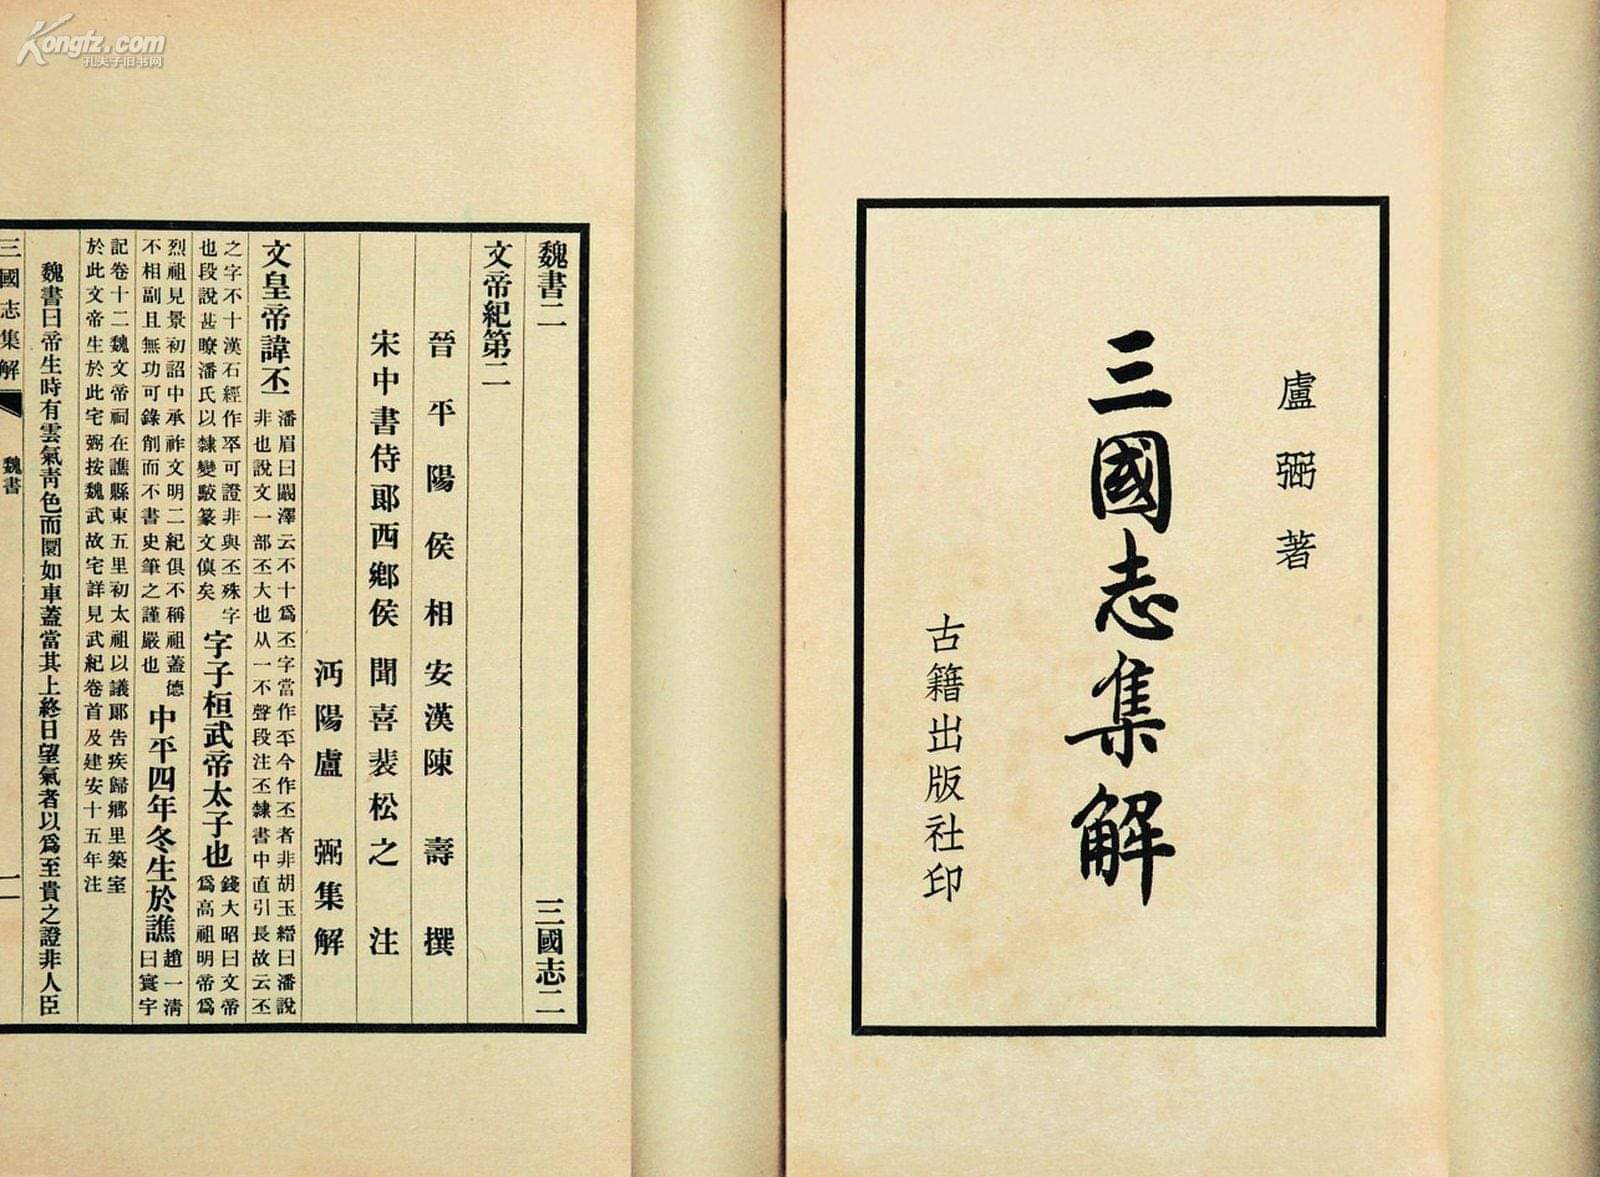 盧弼著
三國志集解
古籍出版社印
魏書二 三國志二
文帝紀第二
晉平陽侯相安漢陳壽撰
宋中書侍郎西鄉侯聞喜裴松之注
沔陽盧弼集解
文皇帝諱丕
潘眉曰闞澤云不十爲丕字當作㔻今作丕者非胡玉縉曰潘說
非也說文一部丕大也从一不聲段注丕隸書中直引長故云丕
之字不十漢石經作㔻可證非與丕殊字
也段說甚瞭潘氏以隸變駮篆文傎矣
字子桓武帝太子也
錢大昭曰文帝
爲高祖明帝爲
烈祖見景初詔中承祚文明二紀俱不稱祖蓋德
不相副且無功可錄削而不書史筆之謹嚴也
中平四年冬生於譙
趙一淸
曰寰宇
記卷十二魏文帝祠在譙縣東五里初太祖以議郎告疾歸鄉里築室
於此文帝生於此宅弼按魏武故宅詳見武紀卷首及建安十五年注
魏書曰帝生時有雲氣靑色而圜如車蓋當其上終日望氣者以爲至貴之證非人臣
三國志集解 魏書 一
Kongfz.com
孔夫子旧书网